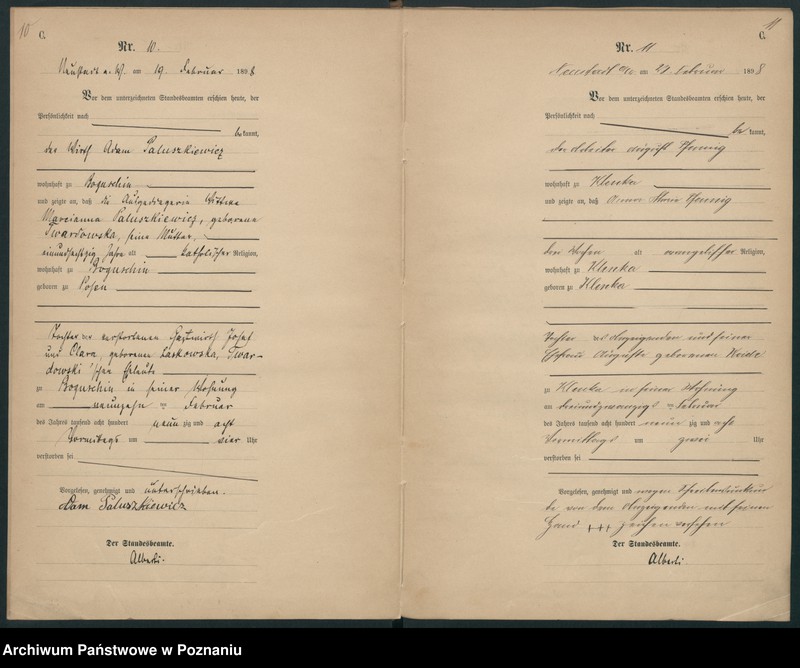 10
C.
Nr. 10.
Neustadt a. W. am 19. Februar 1898
Vor dem unterzeichneten Standesbeamten erschien heute, der
Persönlichkeit nach
bekannt,
der Wirth Adam Paluszkiewicz
wohnhaft zu Boguschin
und zeigte an, daß die Ausgedingerin Wittwe
Marcianna Paluszkiewicz, geborene
Twardowska, seine Mutter,
einundsechszig Jahre alt katholischer Religion,
wohnhaft zu Boguschin
geboren zu Posen
Tochter der verstorbenen Gastwirth Josef
und Clara, geborene Laskowska, Twar-
dowski'schen Eheleute
zu Boguschin in seiner Wohnung
am neunzehn ten Februar
des Jahres tausend acht hundert neun zig und acht
Vormittags um vier Uhr
verstorben sei
Vorgelesen, genehmigt und unterschrieben.
Adam Paluszkiewicz
Der Standesbeamte.
Alberti.
11
C.
Nr. 11
Neustadt a/W am 24 Februar 1898
Vor dem unterzeichneten Standesbeamten erschien heute, der
Persönlichkeit nach
be kannt,
August Pfennig
wohnhaft zu Klenka
und zeigte an, daß Anna Pfennig
drei Wochen alt evangelischer Religion,
wohnhaft zu Klenka
geboren zu Klenka
Tochter des Anzeigenden und seiner
Ehefrau Auguste geborenen
zu Klenka in seiner Wohnung
am dreiundzwanzigs ten Februar
des Jahres tausend acht hundert neun zig und acht
Vormittags um zwei Uhr
verstorben sei
Vorgelesen, genehmigt und wegen Schreibensunkun
de von dem Anzeigenden mit seinem
Hand +++ zeichen versehen
Der Standesbeamte.
Alberti.
Archiwum Państwowe w Poznaniu